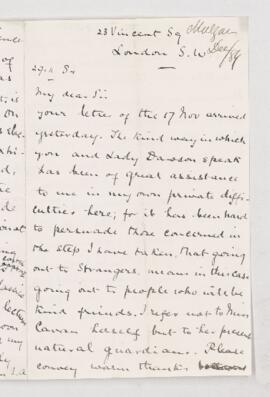 23 Vincent Sq
London S.W.
Dec/84
29.11.84
My dear Sir
your letter of the 17 Nov arrived
yesterday. The kind way in which
you and Lady Dawson speak
has been of great assistance
to me in my own private diffi-
culties here; for it has been hard
to persuade those concerned in
the step I have taken, that going
out to Strangers, means in this case
going out to people who will be
kind friends. I refer not to Miss
herself but to her present
natural guardians. Please
convey warm thanks